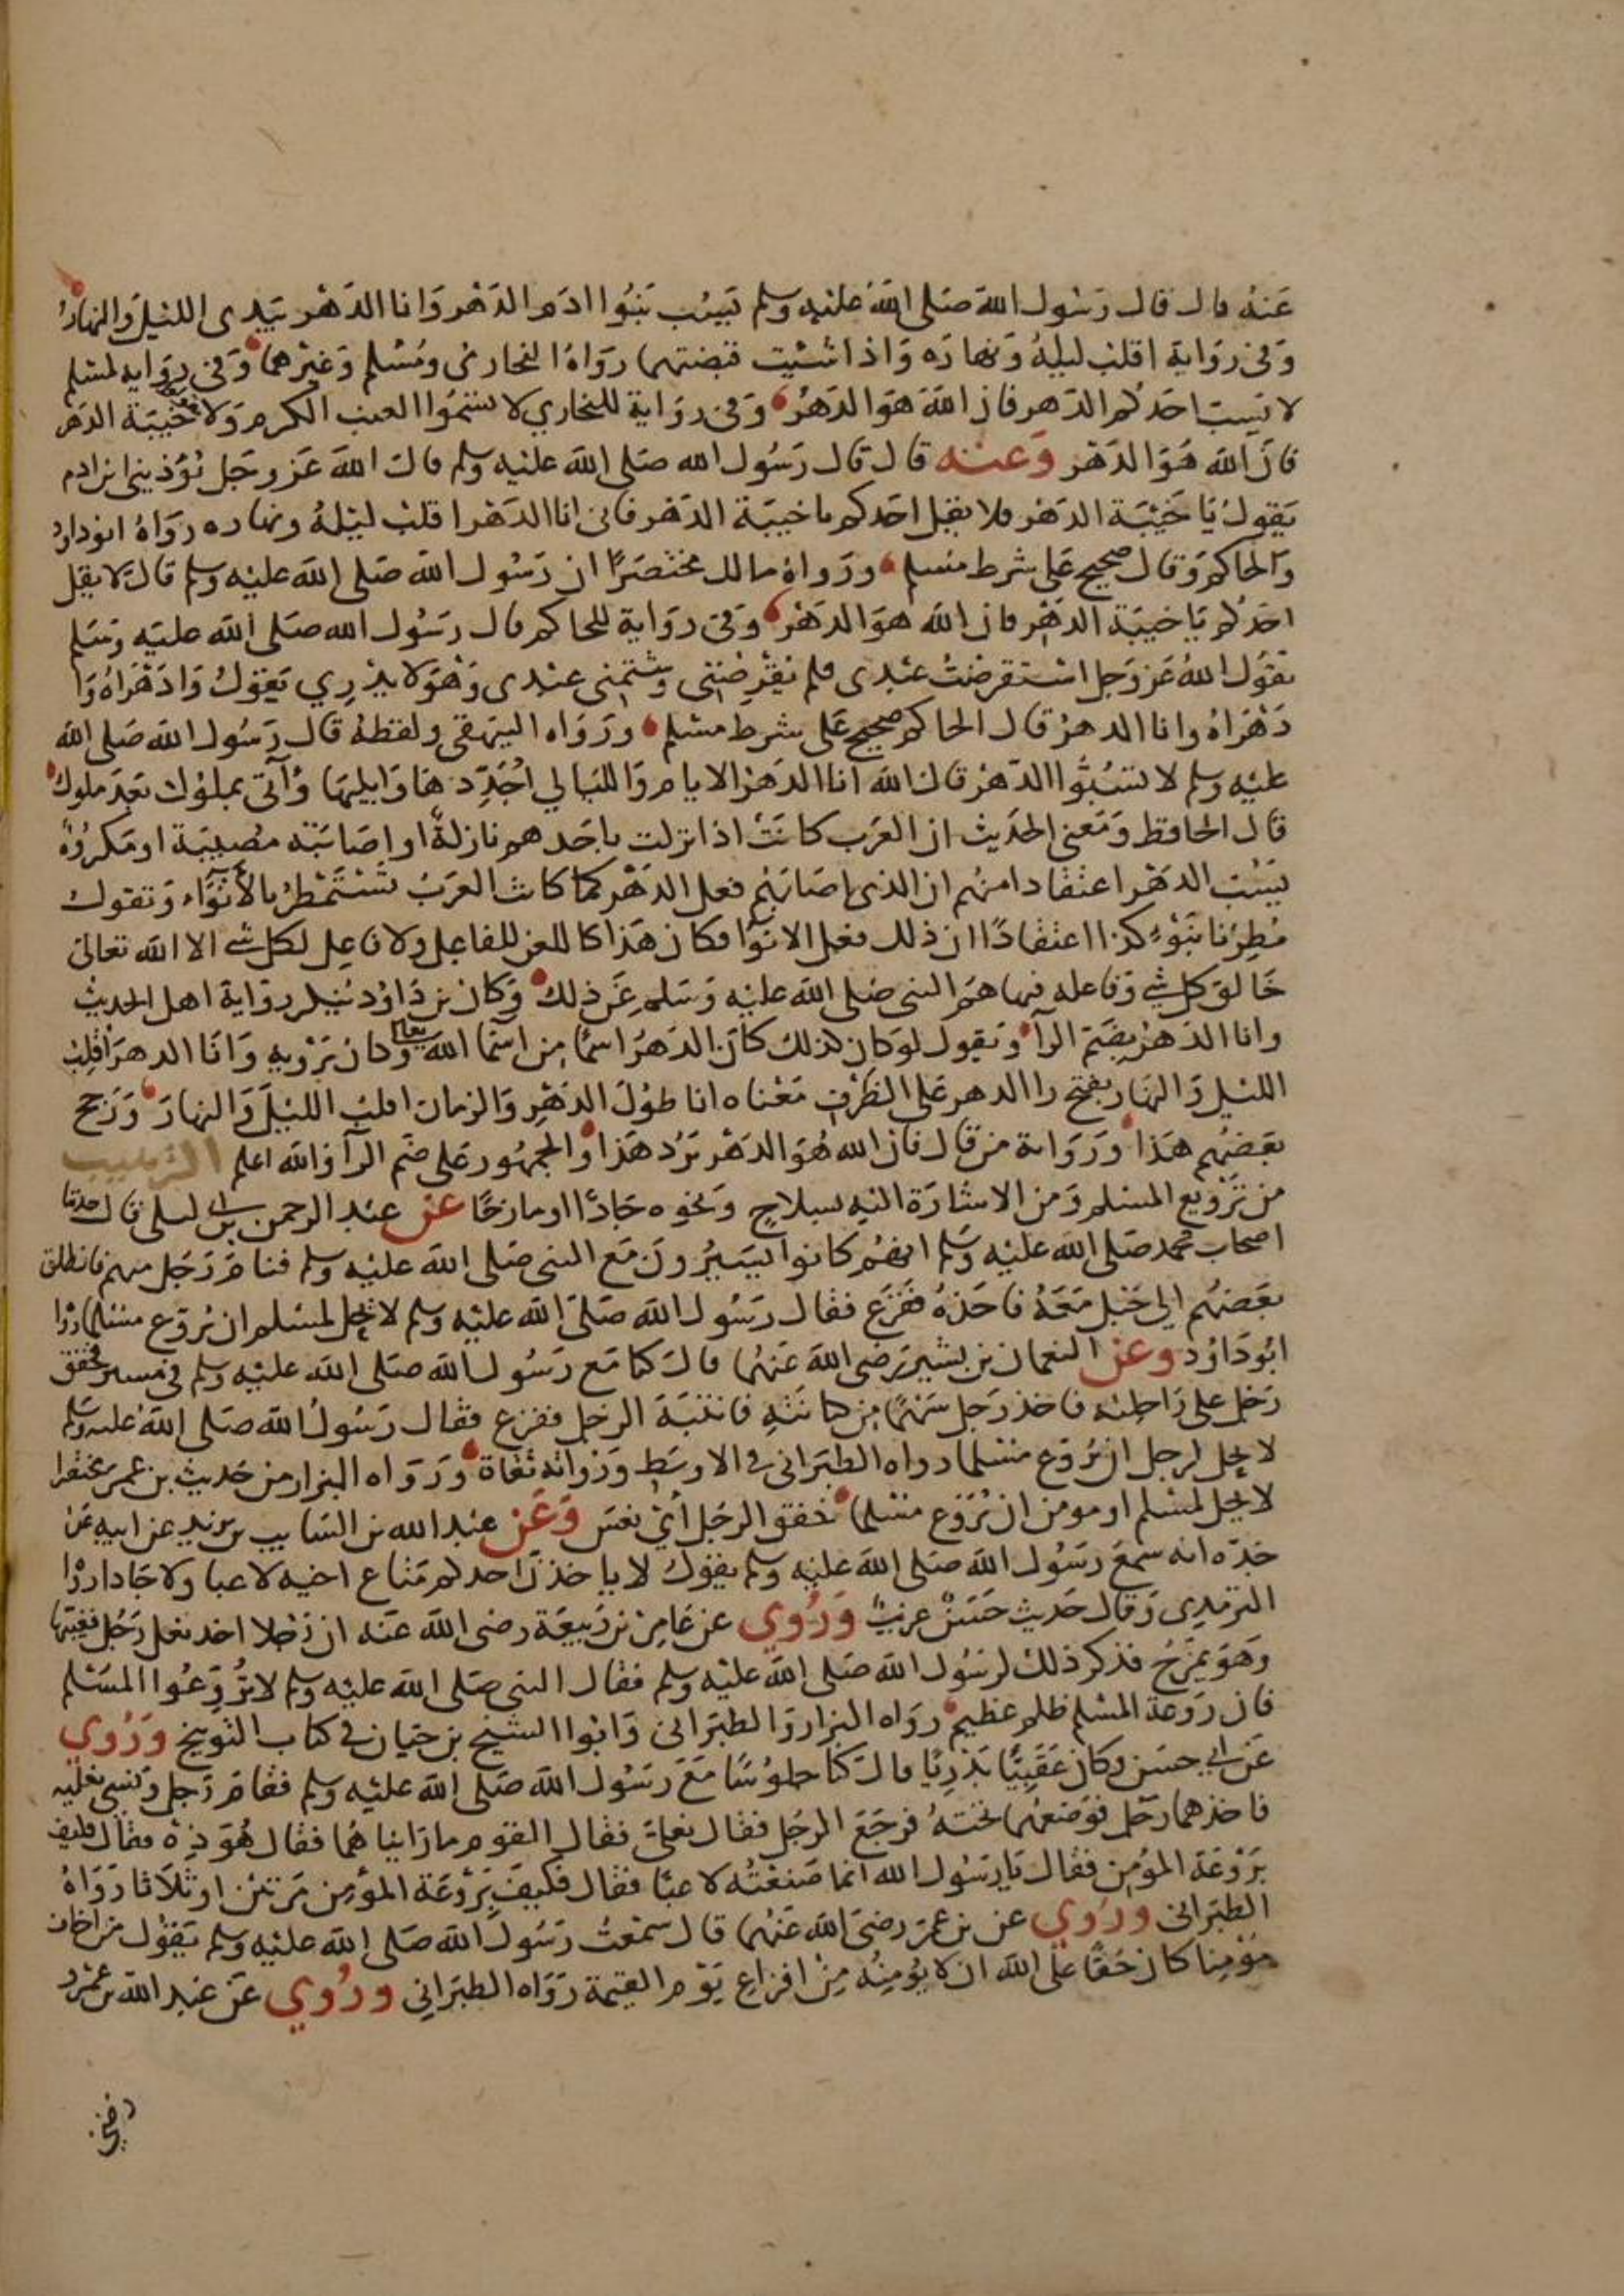 عَنهُ قال قال رَسُول الله صَلى اللهُ عَلَيْه وسلم يَسُب بَنُوا ادَم الدَهْر وَانا الدَهْر بيَدِى اللَيْل وَالنهَارُ
وَفى روَاية اقلب ليلهُ وَنهارَه وَاذا شئت قبضتهما رَوَاهُ البخارى ومُسْلم وَغيْرهما وَفى روَاية لمسْلم
لا يَسب احَدكم الدَهر فان اللهَ هوَ الدَهْرُ وَفى روَاية للبخاري لا تسَمُوا العنب الكرم وَلا خَيْبَة الدَهر
فانَ الله هُوَ الدَهْر وَعَنه قال قال رَسُول الله صَلى الله عَليْه وسلم قال الله عَز وجَل يُؤذيني ابن ادم
يَقول يَا خَيْبَة الدَهْر فلا يقل احَدكم يا خيبَة الدَهْر فانى انا الدَهْر اقلب ليْلهُ ونهاره رَوَاهُ ابوداود
وَالحاكم وَقال صحيح عَلى شرط مسلم ورَوَاهُ مالك مختصَرًا ان رَسُول الله صَلى الله عليْه وسلم قال لا يقل
احَدكم يَا خيبَة الدهْر فان الله هوَ الدَهْر وَفى روَاية للحاكم قال رَسُول الله صَلى الله عليْه وَسَلم
يقول اللهُ عَز وَجَل اسْتقرضْتُ عَبْدى فلم يُقْرضنى وشتمنى عبْدى وَهْوَ لا يَدْري يَقول وَادَهْرَاهُ وَا
دَهْرَاهُ وانا الدهرُ قال الحاكم صحيح عَلى شرط مسْلم ورَوَاه البيْهقى ولفظهُ قال رَسُول الله صَلى الله
عليْه وسلم لا تسُبُّوا الدَهْرَ قال الله انا الدَهْرُ الايام وَالليَالي اُجَدِّدهَا وَابليهَا وَآتى بملوك بَعْدَ ملوك
قال الحافظ وَمَعنى الحَديث ان العَرَب كانَتْ اذا نزلت باحَدهم نازلة او اصَابَته مصيبَة اومَكروهٌ
يَسُب الدَهْر اعتقادا منهم ان الذى اصَابَهُم فعل الدَهْر كما كانت العرَبُ تَسْتَمْطرُ بالأنْوَاء وَتقول
مُطِرْنا بنَوْءِ كذا اعتقادًا ان ذلك فعل الانوَا فكان هَذا كاللعن للفاعل ولا فاعل لكل شى الا الله تعالى
خَالق كل شى وَفاعله فنهاهمُ النبى صَلى الله عليْه وَسَلم عَن ذلك وَكان بن دَاوُد ينكر روَاية اهل الحديث
وانا الدَهْرُ بضَم الرآ وَيقول لوكان كذلك كانَ الدَهرُ اسمًا من اسْمآ الله تعالى وَكان يَرْويه وَانَا الدهرَ اُقلِبُ
الليْل وَالنهَار بفتح را الدهر عَلى الظرْف مَعْناه انا طوْلَ الدَهْر وَالزمان اقلب الليْلَ وَالنهارَ وَرَجح
بَعضهُم هَذا وَرَوَاية من قال فان الله هُوَ الدَهْر يَرُد هَذا وَالجمْهُور عَلى ضَم الرآ وَالله اعلم الترهيب
من تَرْويع المسْلم وَمن الاشارَة اليْه بسِلاح وَنحوه جَادًا اومازحًا عَن عبْد الرحمن بن ابى ليلى قال حدثنا
اصحاب محمد صَلى الله عليْه وسَلم انهُم كانوا يَسيرُونَ مَع النبى صَلى الله عليْه وسلم فنامَ رَجَل منهم فانطلق
بَعضهُم الى حَبْل مَعَهُ فاخذهُ ففزعَ فقال رَسُول الله صَلى الله عليْه وسلم لا يحل لمسْلم ان يُرَوّع مسْلما رَوَاه
ابُو دَاوُد وعن النعمان بن بشير رَضى الله عَنهُما قال كنا مَع رَسُول الله صَلى الله عليْه وسلم فى مسير فخفق
رَجل على رَاحلته فاخذ رَجل سَهْمًا من كنانَتهِ فانتبَهَ الرجل ففزع فقال رَسُولُ الله صَلى اللهُ عليه وسلم
لا يحل لرجل ان يُرَوّع مسْلما رواه الطبَرانى فى الاوسَط وَرُوَاته ثقاة وَرَوَاه البزار من حَديث بن عمر مختصرا
لا يحل لمسْلم او مومن ان يُرَوّع مسْلما خفق الرجَل اَيْ نعسَ وَعَن عبْد الله بن السَايب بن يزيد عن ابيه عَن
جَدّه انه سمعَ رَسُول الله صَلى الله عليْه وسلم يقول لا ياخذنَ احدكم مَتاع اخيه لاعبا ولا جَادا رَوَاه
الترمِدِى وَقال حَديث حَسَنٌ غريبٌ وَرُوي عن عَامِر بن رَبيعَة رضى الله عَنه ان رَجلا اخذ نعل رَجُل فغيَّبها
وَهوَ يمْزَحُ فذكرَ ذلك لرسُول الله صَلى الله عليْه وسلم فقال النبى صَلى الله عليْه وسلم لا تُرَوِّعُوا المسْلم
فان رَوعَة المسْلم ظلم عَظيم رَوَاه البزار وَالطبَرانى وَابُوا الشيْخ بن حَيان فى كتاب التوبيخ وَرُوي
عَن ابى حسَن وكان عَقَبِيًّا بَدْريًا قال كنا جلوسًا مَعَ رَسُول الله صَلى الله عليْه وسلم فقامَ رَجل وَنسى نعْليْه
فاخذهما رَجل فوَضعهُما تحتهُ فرَجَعَ الرجُل فقال نعلىَّ فقال القوم مارَايناهُما فقال هُوَ ذِهْ فقال فكيف
برَوْعَة المؤمن فقال يَا رسُول الله انما صَنعْتُه لاعبًا فقال فكيْفَ برَوْعَة المؤمن مَرتيْن اوثلاَثا رَوَاهُ
الطبَرانى وَرُوي عن بن عمَرَ رضىَ الله عَنهُما قال سَمعْتُ رَسُول الله صَلى الله عليْه وسلم يَقول من اخاف
مُؤمِنا كان حَقًا عَلى الله ان لا يؤمِنُه مِنْ افزاع يَوْم القيمة رَوَاه الطبَرانِى وَرُوي عَن عَبْد الله بن عَمْرو
رضى